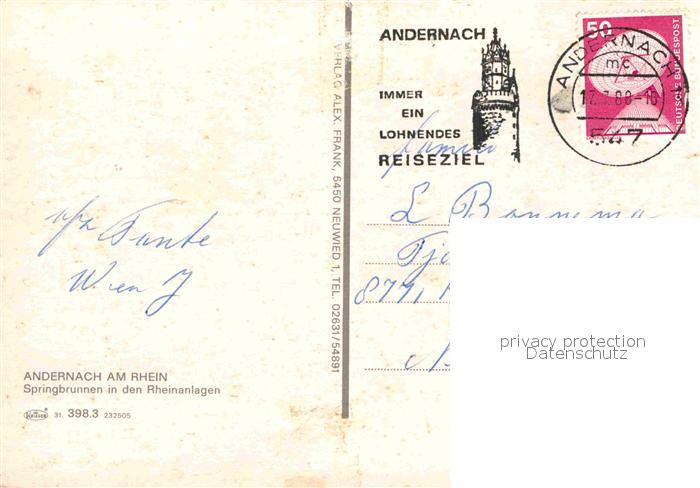 ANDERNACH
IMMER
EIN
LOHNENDES
REISEZIEL
50
DEUTSCHE BUNDESPOST
ANDERNACH
mc
547
VERLAG ALEX. FRANK, 5450 NEUWIED 1, TEL. 02631/54891
L Bonnema
Tante
Wien J
8771
privacy protection
Datenschutz
ANDERNACH AM RHEIN
Springbrunnen in den Rheinanlagen
31. 398.3 232505